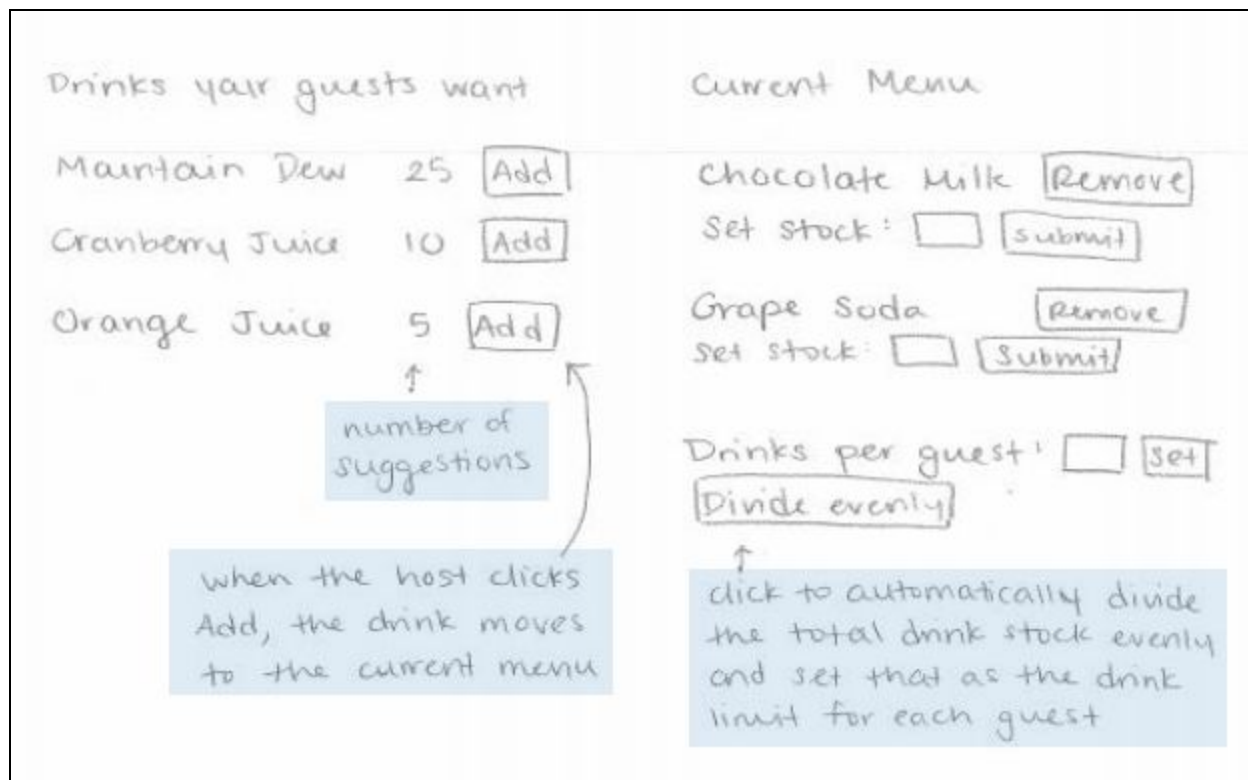 Drinks your guests want
Mountain Dew 25 Add
Cranberry Juice 10 Add
Orange Juice 5 Add
number of
suggestions
when the host clicks
Add, the drink moves
to the current menu
Current Menu
Chocolate Milk Remove
Set stock: Submit
Grape Soda Remove
Set stock: Submit
Drinks per guest: Set
Divide evenly
click to automatically divide
the total drink stock evenly
and set that as the drink
limit for each guest